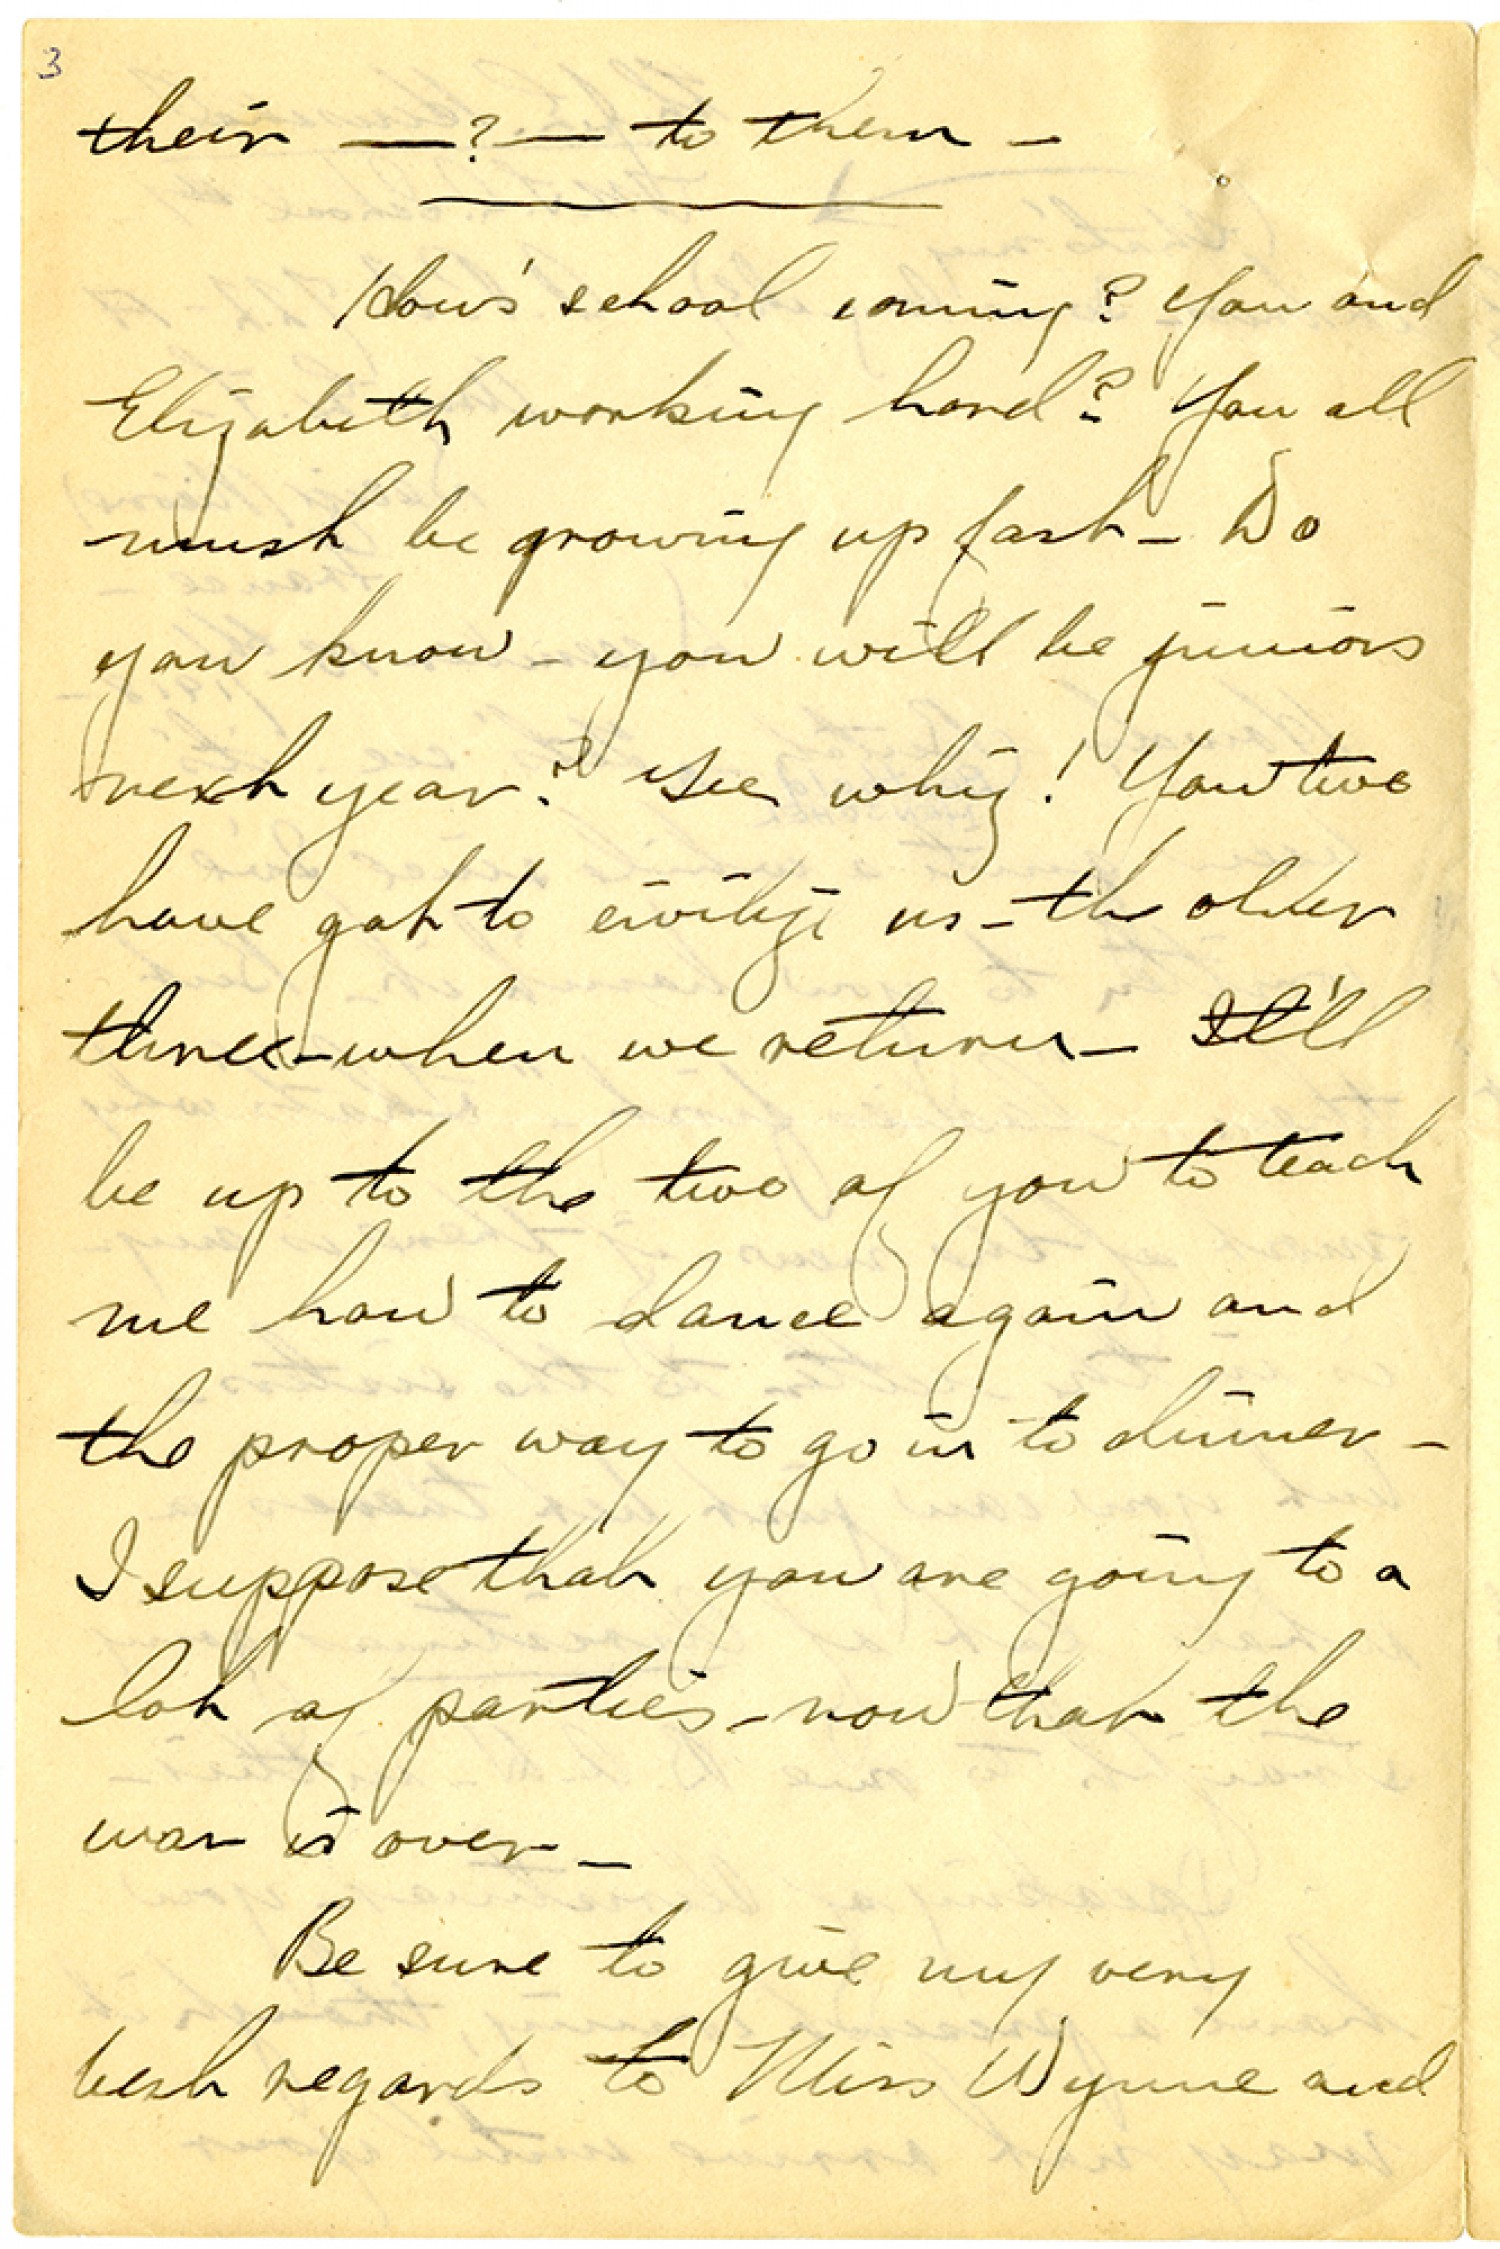 3
their —?— to them —
How's school coming? You and
Elizabeth working hard? You all
must be growing up fast — Do
you know — you will be juniors
next year? Gee whiz! You two
have got to civilize us — the older
three — when we return — It'll
be up to the two of you to teach
me how to dance again and
the proper way to go in to dinner —
I suppose that you are going to a
lot of parties — now that the
war is over —
Be sure to give my very
best regards to Miss Wynne and